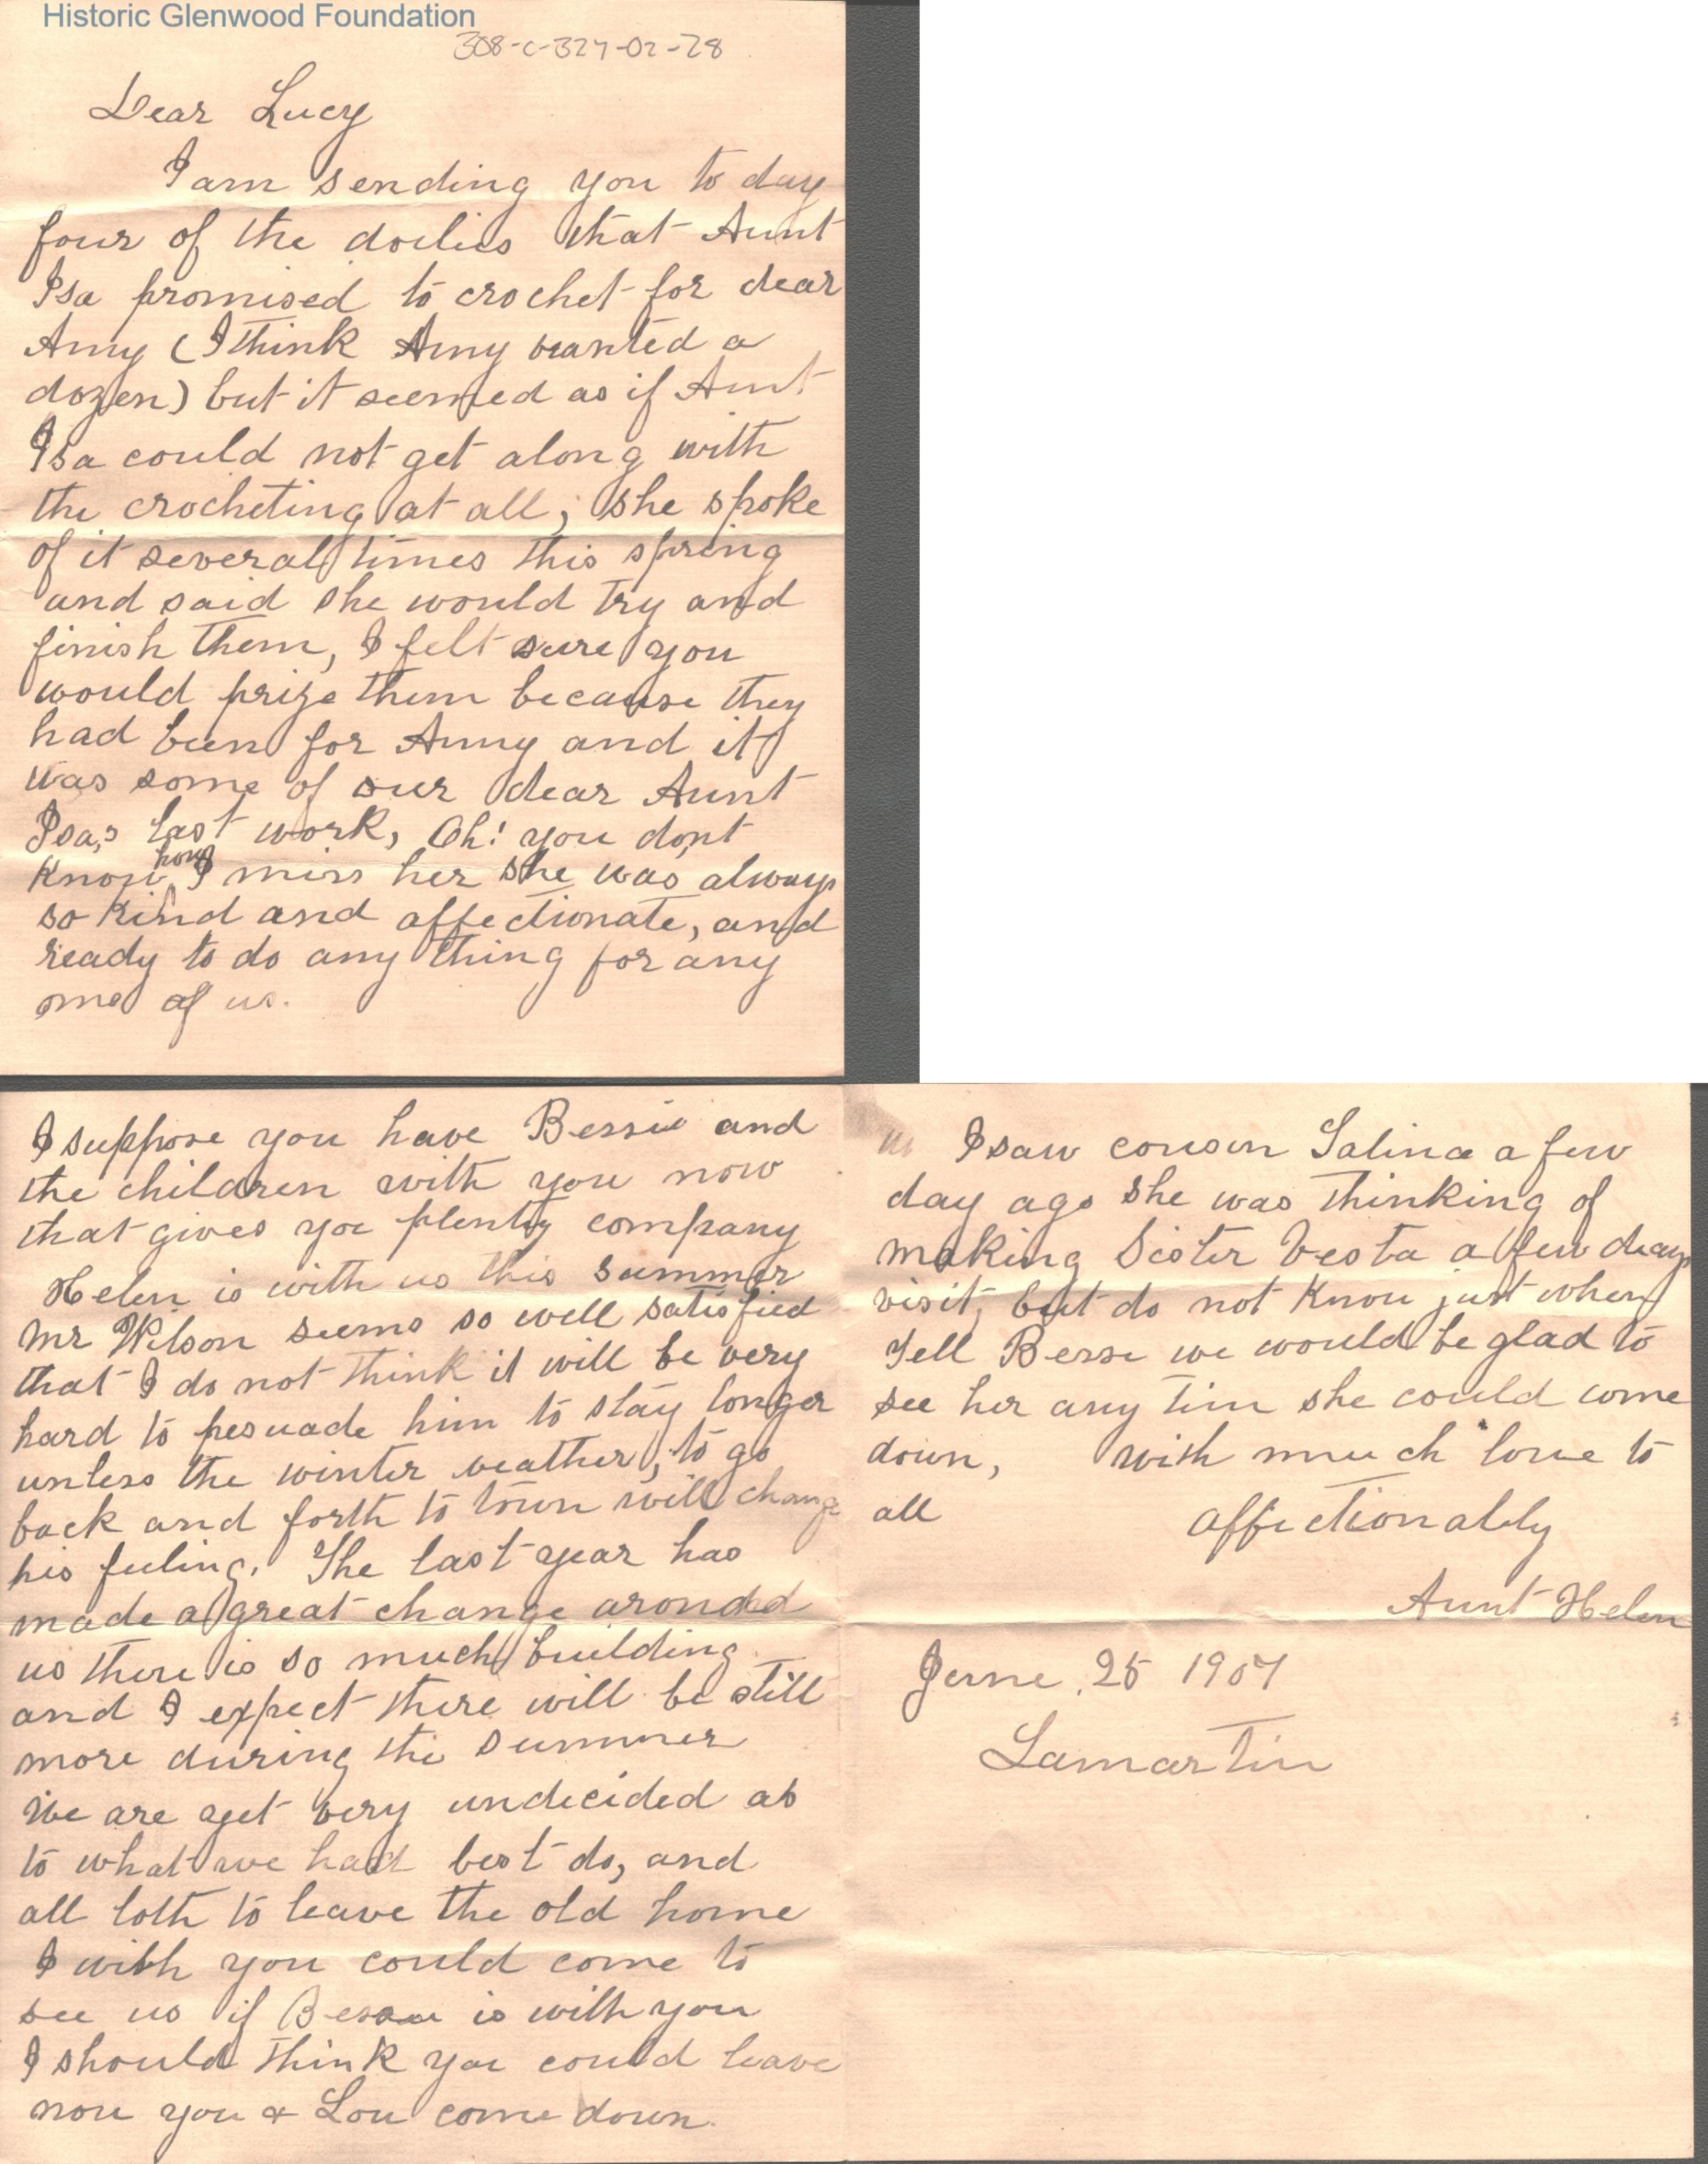 Historic Glenwood Foundation
308-C-327-02-28
Dear Lucy
I am sending you to day
four of the doilies that Aunt
Isa promised to crochet for dear
Amy (I think Amy wanted a
dozen) but it seemed as if Aunt
Isa could not get along with
the crocheting at all; she spoke
of it several times this spring
and said she would try and
finish them, I felt sure you
would prize them because they
had been for Amy and it
was some of our dear Aunt
Isa,s last work, Oh! you don,t
know how I miss her she was always
so kind and affectionate, and
ready to do any thing for any
one of us.
I suppose you have Bessie and
the children with you now
that gives you plenty company
Helen is with us this summer
Mr Wilson seems so well satisfied
that I do not think it will be very
hard to pesuade him to stay longer
unless the winter weather, to go
back and forth to town will change
his feeling. The last year has
made a great change arounded
us there is so much building
and I expect there will be still
more during the summer
We are yet very undecided as
to what we had best do, and
all loth to leave the old home
I wish you could come to
see us if Bessie is with you
I should think you could leave
now you & Lou come down.
I saw cousin Salina a few
day ago she was thinking of
making Sister Vesta a few days
visit, but do not know just when
Tell Bessi we would be glad to
see her any tim she could come
down, with much love to
all affectionally
Aunt Helen
June, 25 1907
Lamartin